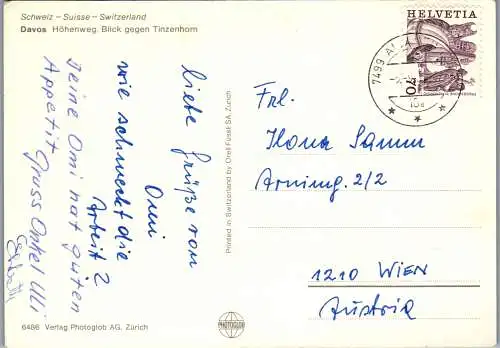 Schweiz – Suisse – Switzerland
Davos Höhenweg. Blick gegen Tinzenhorn
liebe Grüße von
Omi
wie schmeckt die
Arbeit?
Deine Omi hat guten
Appetit
Gruss Onkel Uli
Printed in Switzerland by Orell Füssli SA, Zürich
HELVETIA
70
7499
Frl.
Ilona Samm
Arnimg. 2/2
1210 WIEN
Austria
6486 Verlag Photoglob AG, Zürich
PHOTOGLOB